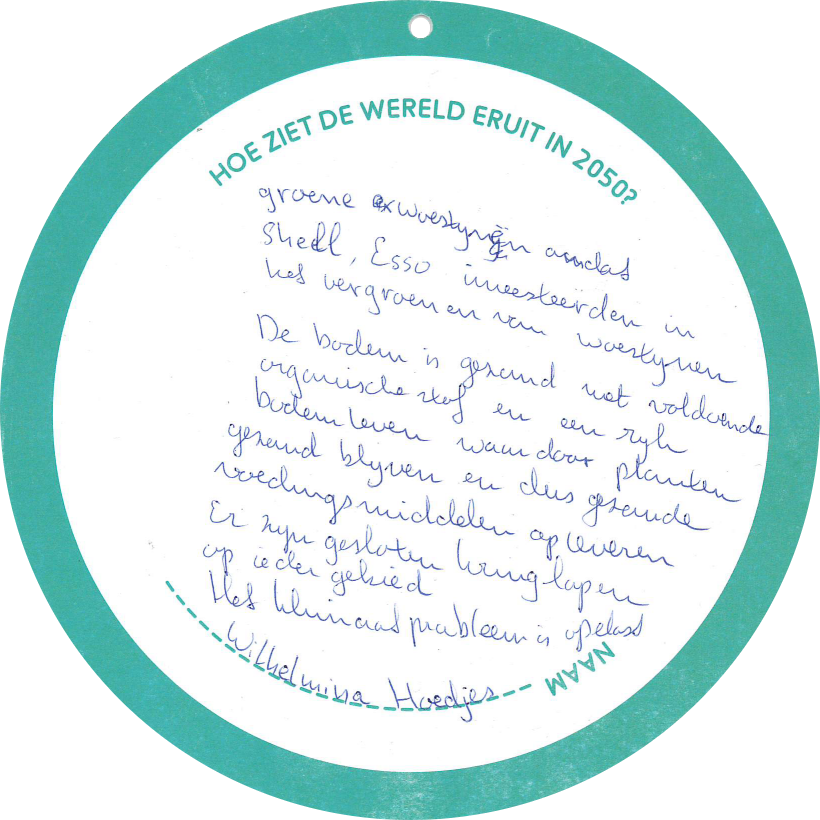 HOE ZIET DE WERELD ERUIT IN 2050?
groene woestynen omdat
Shell, Esso investeerden in
het vergroenen van woestynen
De bodem is gezond met voldoende
organische stof en een ryk
bodemleven waardoor planten
gezond blyven en dus gezonde
voedingsmiddelen opleveren
Er zyn gesloten kringlopen
op ieder gebied
Het klimaatprobleem is opelost
Wilhelmina Hoedjes
NAAM